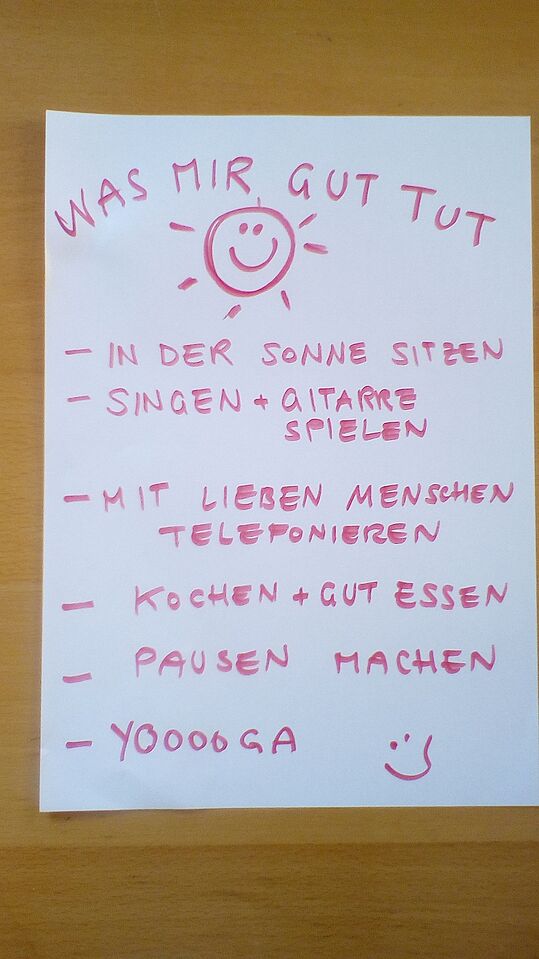 WAS MIR GUT TUT
- IN DER SONNE SITZEN
- SINGEN + GITARRE
SPIELEN
- MIT LIEBEN MENSCHEN
TELEFONIEREN
- KOCHEN + GUT ESSEN
- PAUSEN MACHEN
- YOOOOGA